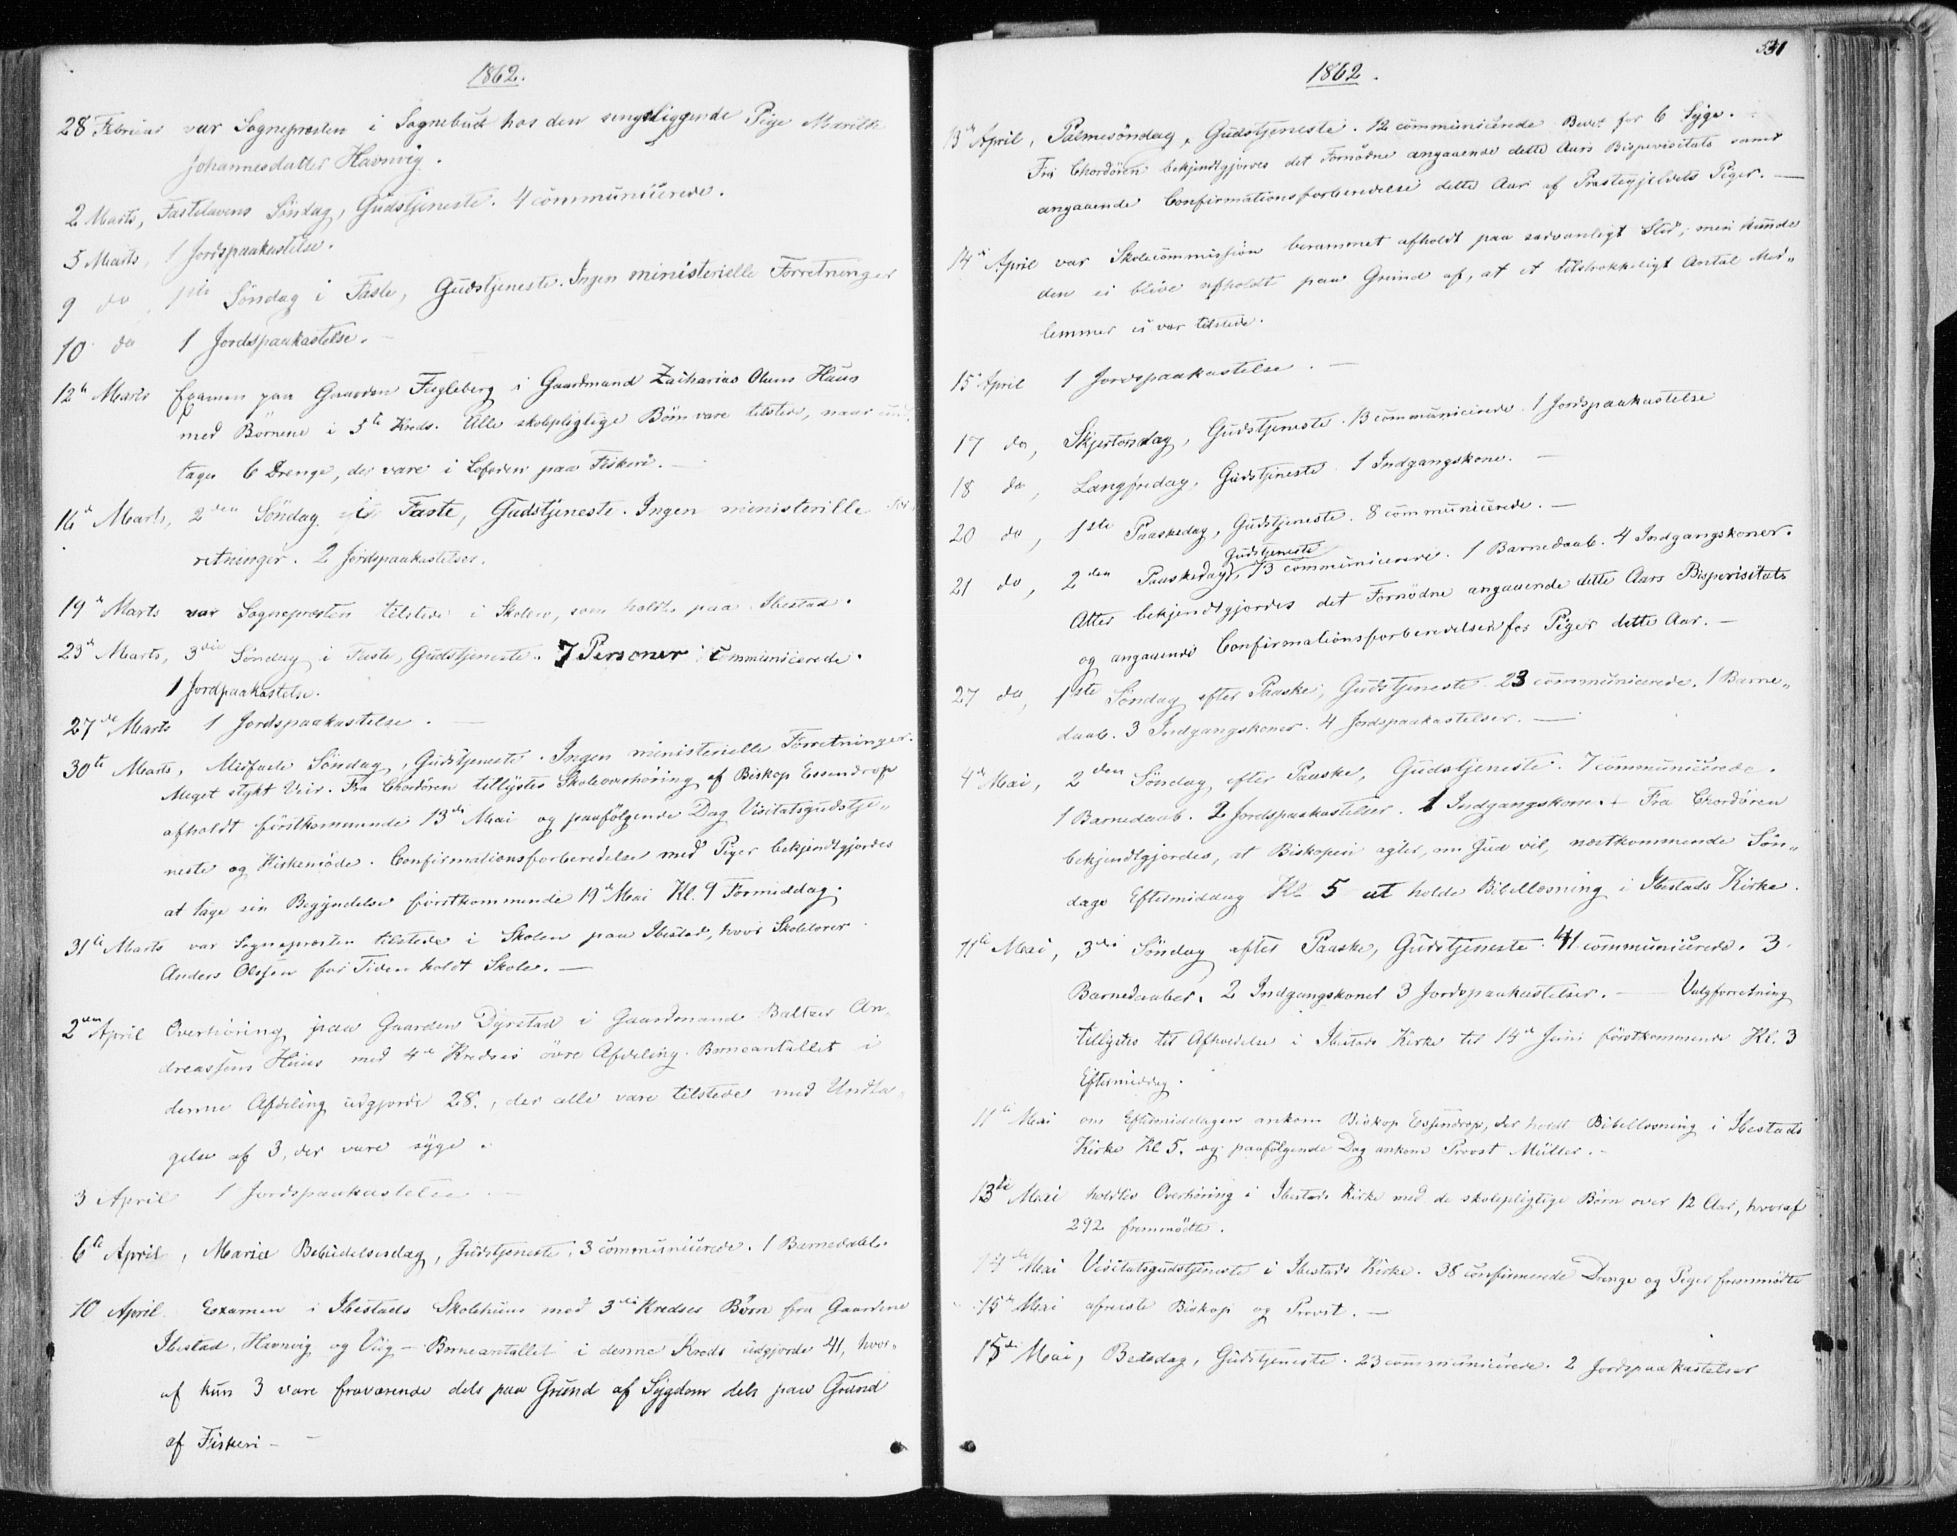 1862.
28 Februar var Sognepresten i Sognebud hos den sengeliggende Pige Marith
Johannesdatter Havnvig.
2 Marts, Fastelavens Søndag, Gudstjeneste. 4 communicerede.
5 Marts, 1 Jordspaakastelse.
9 do, 1ste Søndag i Faste, Gudstjeneste. Ingen ministerielle Forretninger
10 do 1 Jordspaakastelse.
12te Marts Examen paa Gaarden Fugleberg i Gaardmand Zacharias Olsens Huus
med Børnene i 5te Kreds. Alle skolepligtige Børn vare tilstede, naar und-
tages 6 Drenge, der vare i Lofoden paa Fiskeri.
16de Marts, 2den Søndag i Faste, Gudstjeneste. Ingen ministerielle For-
retninger. 2 Jordspaakastelser.
19de Marts var Sognepresten tilstede i Skolen, som holdtes paa Ibestad.
23de Marts, 3die Søndag i Faste, Gudstjeneste. 7 Personer communicerede.
1 Jordpaakastelse.
27de Marts 1 Jordspaakastelse. —
30te Marts, Midfaste Søndag, Gudstjeneste. Ingen ministerielle Forretninger.
Meget stykt Veir. Fra Chordøren tillystes Skoleoverhøring af Biskop Essendrop
afholdt førstkommende 13de Mai og paafølgende Dag Visitatsgudstje„
neste og Kirkemøde. Confirmationsforberedelse med Piger bekjendtgjordes
at tage sin Begyndelse førstkommende 19de Mai Kl. 9 Formiddag.
31te Marts var Sognepresten tilstede i Skolen paa Ibestad, hvor Skolelærer
Anders Olsen for Tiden holdt Skole. —
2den April Overhøring paa Gaarden Dyrstad i Gaardmand Baltzer An-
dreassens Huus med 4de Kredses øvre Afdeling. Børneantallet i
denne Afdeling udgjorde 28, der alle vare tilstede med Undta-
gelse af 3, der vare syge.
3 April 1 Jordspaakastelse —
6te April, Mariæ Bebudelsesdag, Gudstjeneste, 3 communicerede. 1 Barnedaab.
10 April Examen i Ibestads Skolehuus med 3die Kredses Børn fra Gaardene
Ibestad, Havnvig og Viig — Børneantallet i denne Kreds udgjorde 41, hvor-
af kun 3 vare fraværende dels paa Grund af Sygdom dels paa Grund
af Fiskeri —
531
1862.
13de April, Palmesøndag, Gudstjeneste. 12 communicerede. Bedet for 6 Syge.
Fra Chordøren bekjendtgjordes det Fornødne angaaende dette Aars Bispevisitats samt
angaaende Confirmationsforberedelse dette Aar af Præstegjeldets Piger. —
14de April var Skolecommission berammet afholdt paa sædvanligt Sted; men kunde
den ei blive afholdt paa Grund af, at et tilstrækkeligt Antal Med„
lemmer ei var tilstede.
15 April 1 Jordspaakastelse. —
17 do, Skjertorsdag, Gudstjeneste. 13 communicerede. 1 Jordspaakastelse
18 do, Langfredag, Gudstjeneste. 1 Indgangskone. —
20 do, 1ste Paaskedag, Gudstjeneste. 8 communicerede. —
Gudstjeneste
21 do, 2den Paaskedag, 13 communicerede. 1 Barnedaab. 4 Indgangskoner.
Atter bekjendtgjordes det Fornødne angaaende dette Aars Bispevisitats
og angaaende Confirmationsforberedelsen for Piger dette Aar. —
27 do, 1ste Søndag efter Paaske, Gudstjeneste. 23 communicerede. 1 Barne„
daab. 3 Indgangskoner. 4 Jordspaakastelser. —
4de Mai, 2den Søndag efter Paaske, Gudstjeneste. 7 communicerede.
1 Barnedaab. 2 Jordspaakastelser. 1 Indgangskone. + Fra Chordøren
bekjendtgjordes, at Biskopen agter, om Gud vil, næstkommende Søn„
dags Eftermiddag Kl. 5 at holde Bibellæsning i Ibestads Kirke.
11te Mai, 3die Søndag efter Paaske, Gudstjeneste. 41 communicerede. 3
Barnedaaber. 2 Indgangskoner 3 Jordspaakastelser. — Valgforretning
tillystes til Afholdelse i Ibestads Kirke til 14de Juni førstkommende Kl. 3
Eftermiddag.
11te Mai om Eftermiddagen ankom Biskop Essendrop, der holdt Bibellæsning i Ibestads
Kirke Kl 5. og paafølgende Dag ankom Provst Müller. —
13de Mai holdtes Overhøring i Ibestads Kirke med de skolepligtige Børn over 12 Aar, hvoraf
292 fremmødte.
14de Mai Visitatsgudstjeneste i Ibestads Kirke. 38 confirmerede Drenge og Piger fremmødte
15de Mai afreiste Biskop og Provst. —
15de Mai, Bededag, Gudstjeneste. 23 communicerede. 2 Jordspaakastelser